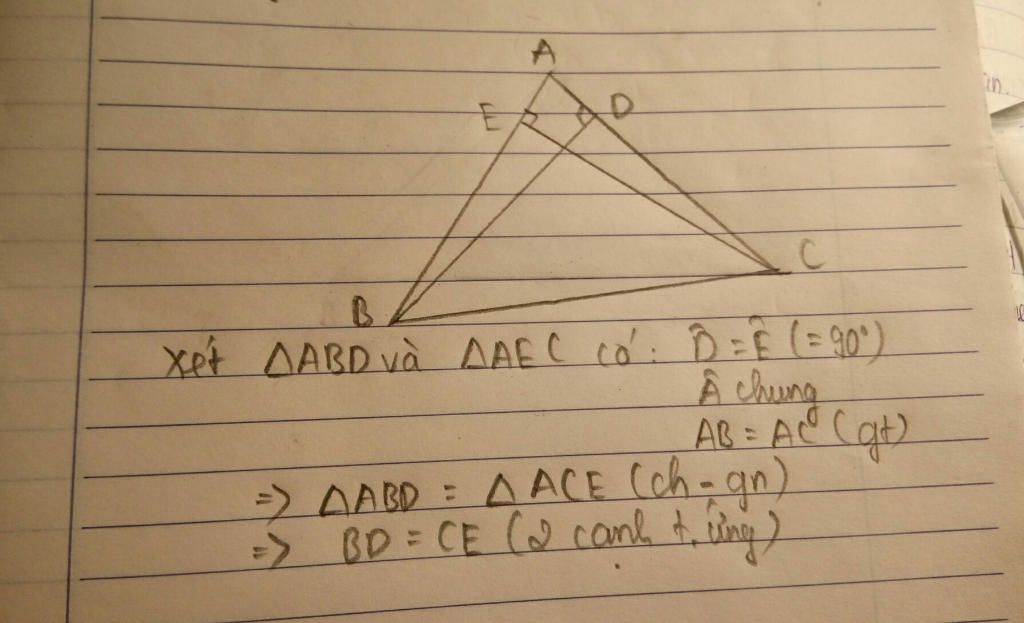 A
E D
C
B
Xét ΔABD và ΔAEC có: D̂ = Ê (=90°)
Â chung
AB = AC (gt)
=> ΔABD = ΔACE (ch - gn)
=> BD = CE (2 cạnh t. ứng)